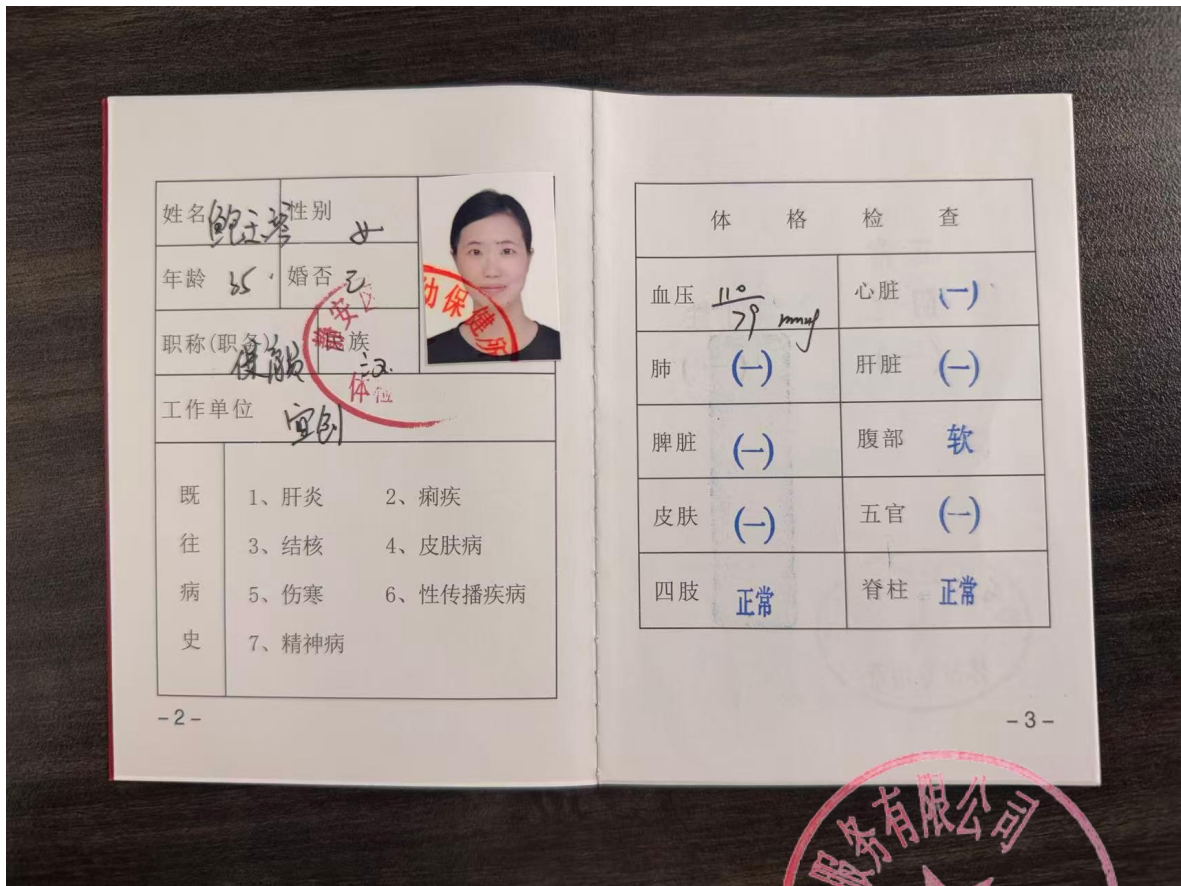 姓名 鲍玉琴 性别 女
年龄 35 婚否 已
职称(职务) 保育员 民族 汉
工作单位
静安区
幼保健所
体检
既往病史
1、肝炎 2、痢疾
3、结核 4、皮肤病
5、伤寒 6、性传播疾病
7、精神病
-2-
体格检查
血压 110/79 mmHg 心脏 (一)
肺 (一) 肝脏 (一)
脾脏 (一) 腹部 软
皮肤 (一) 五官 (一)
四肢 正常 脊柱 正常
-3-
服务有限公司